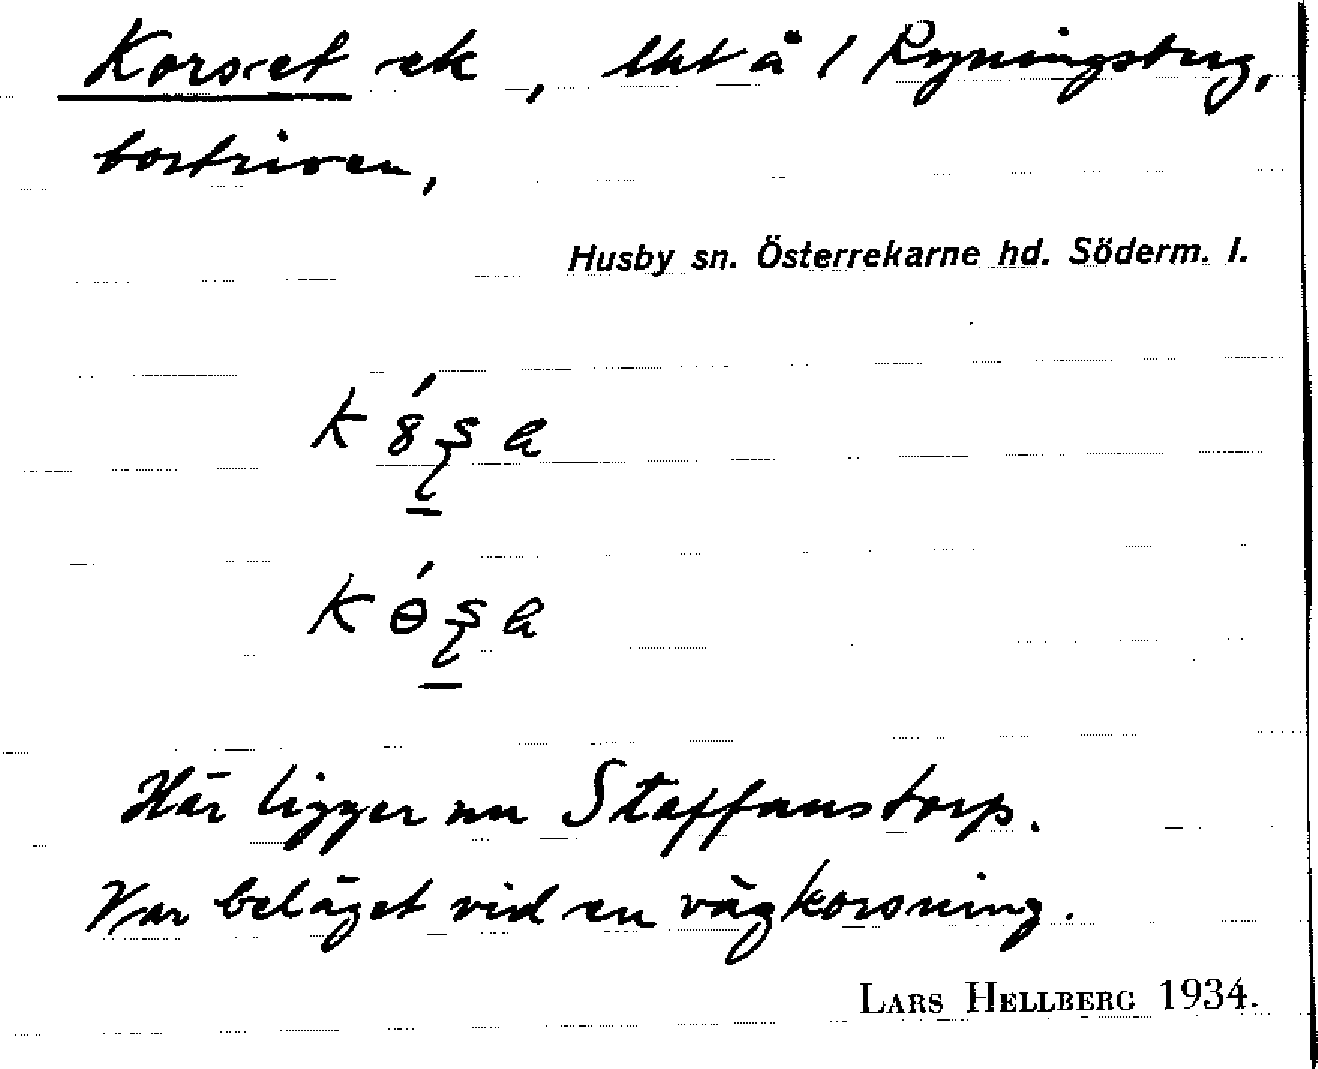 Korset ek, lht å 1 Ryningsberg,
bortriven,
Husby sn. Österrekarne hd. Söderm. l.
Här ligger nu Staffanstorp.
Var beläget vid en vägkorsning.
LARS HELLBERG 1934.